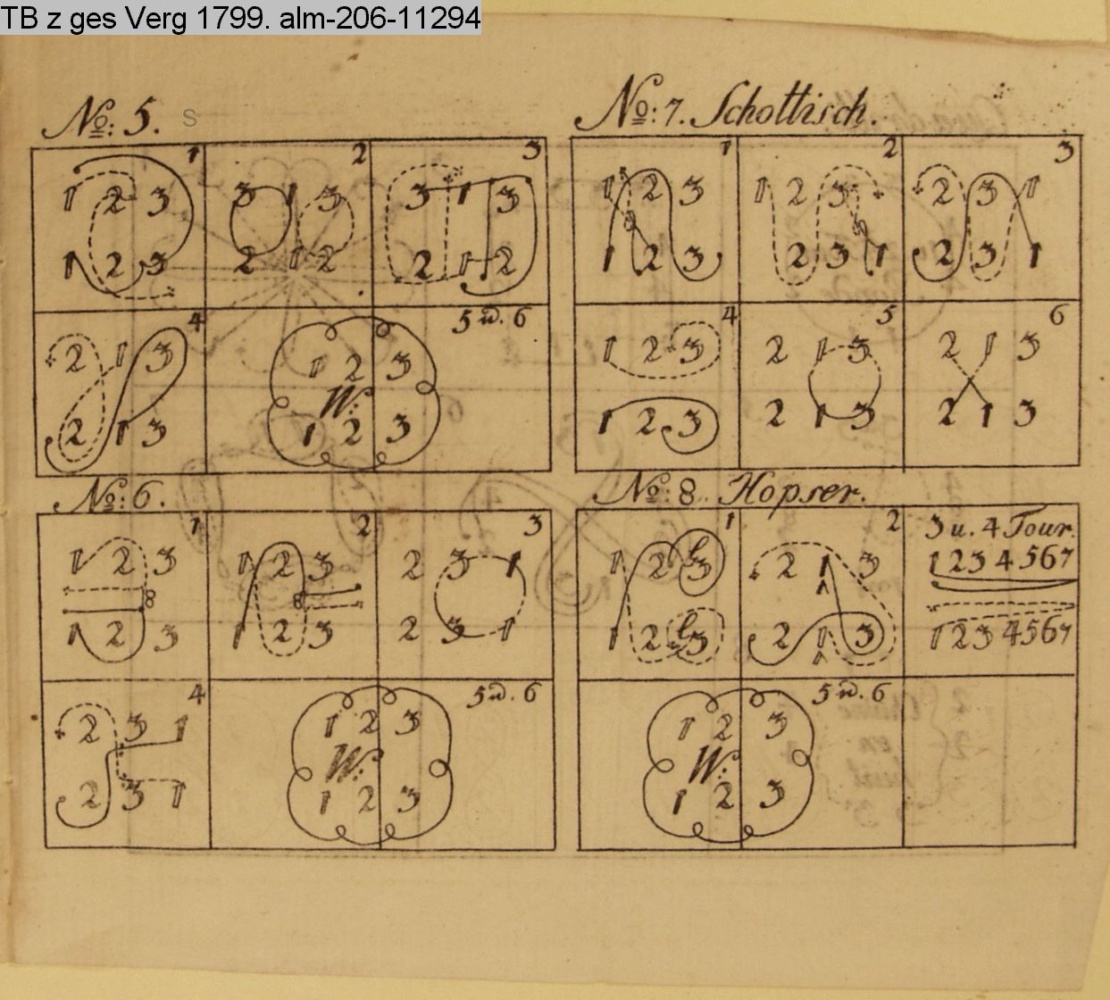 TB z ges Verg 1799. alm-206-11294
No: 5. s
1
1 2 3
1 2 3
2
3 1 3
2 1 2
3
3 1 3
2 1 2
4
2 1 3
2 1 3
5 u. 6
1 2 3
W.
1 2 3
No: 7. Schottisch.
1
1 2 3
8
1 2 3
2
1 2 3
8
2 3 1
3
2 3 1
2 3 1
4
1 2 3
1 2 3
5
2 1 3
2 1 3
6
2 1 3
2 1 3
No: 6.
1
1 2 3
8
1 2 3
2
1 2 3
8
1 2 3
3
2 3 1
2 3 1
4
2 3 1
2 3 1
5 u. 6
1 2 3
W.
1 2 3
No: 8. Hopser.
1
1 2 3
1 2 3
2
2 1 3
2 1 3
3 u. 4 Tour.
1 2 3 4 5 6 7
1 2 3 4 5 6 7
5 u. 6
1 2 3
W.
1 2 3